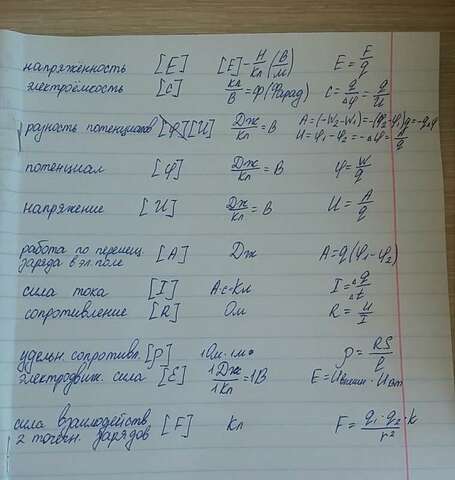 напряжённость [E] [E]=Н/Кл (В/м) E = F/q
электроёмкость [C] Кл/В = Ф (Фарад) C = q/Δφ = q/U
разность потенциалов [φ] [U] Дж/Кл = В A = (-W₂-W₁) = -(φ₂-φ₁)q = -qΔφ
U = φ₁-φ₂ = -Δφ = A/q
потенциал [φ] Дж/Кл = В φ = W/q
напряжение [U] Дж/Кл = В U = A/q
работа по перемещ.
заряда в эл. поле [A] Дж A = q(φ₁-φ₂)
сила тока [I] I = Δq/Δt
сопротивление [R] Ом R = U/I
удельн. сопротивл. [ρ] 1Ом·1м ρ = RS/l
электродвиж. сила [Ɛ] 1Дж/1Кл = 1В
сила взаимодейств.
2 точечн. зарядов [F] Кл F = q₁·q₂·k/r²